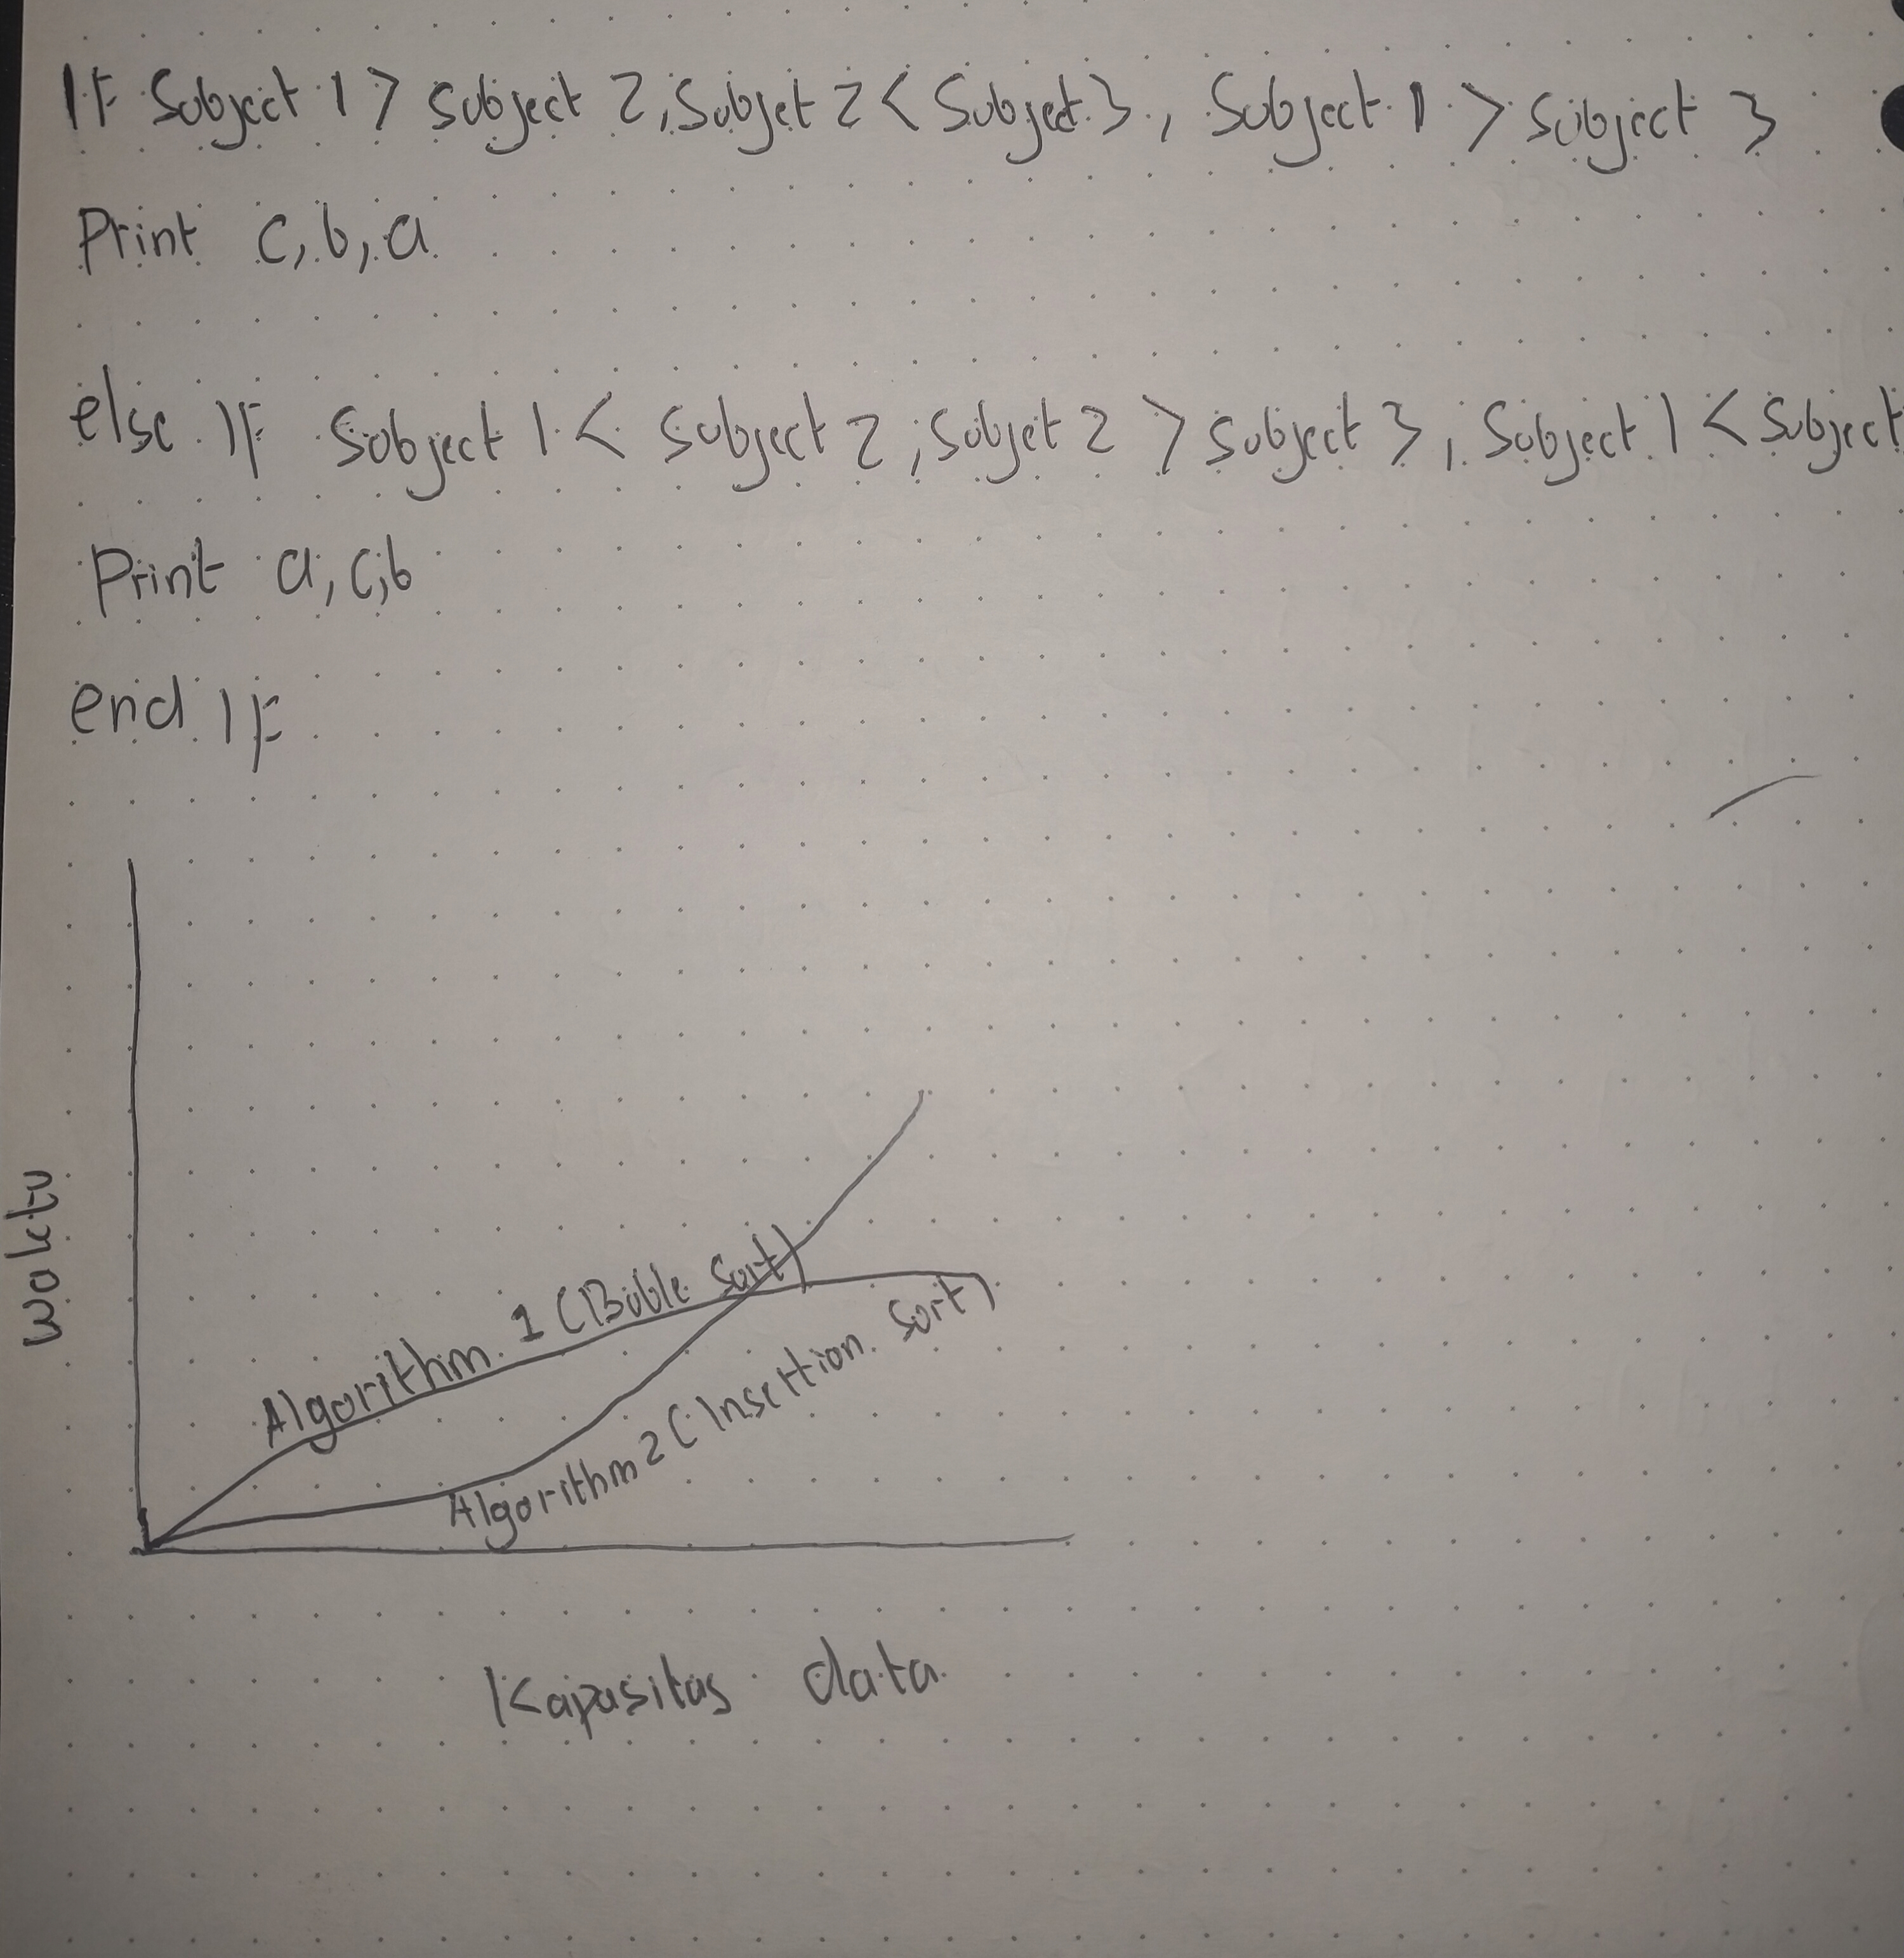 If Subject 1 > Subject 2, Subjet 2 < Subject 3, Subject 1 > Subject 3
Print c, b, a
else If Subject 1 < Subject 2, Subjet 2 > Subject 3, Subject 1 < Subject
Print a, c, b
end If
Waktu
Algorithm 1 (Buble Sort)
Algorithm 2 (Insertion Sort)
Kapasitas data